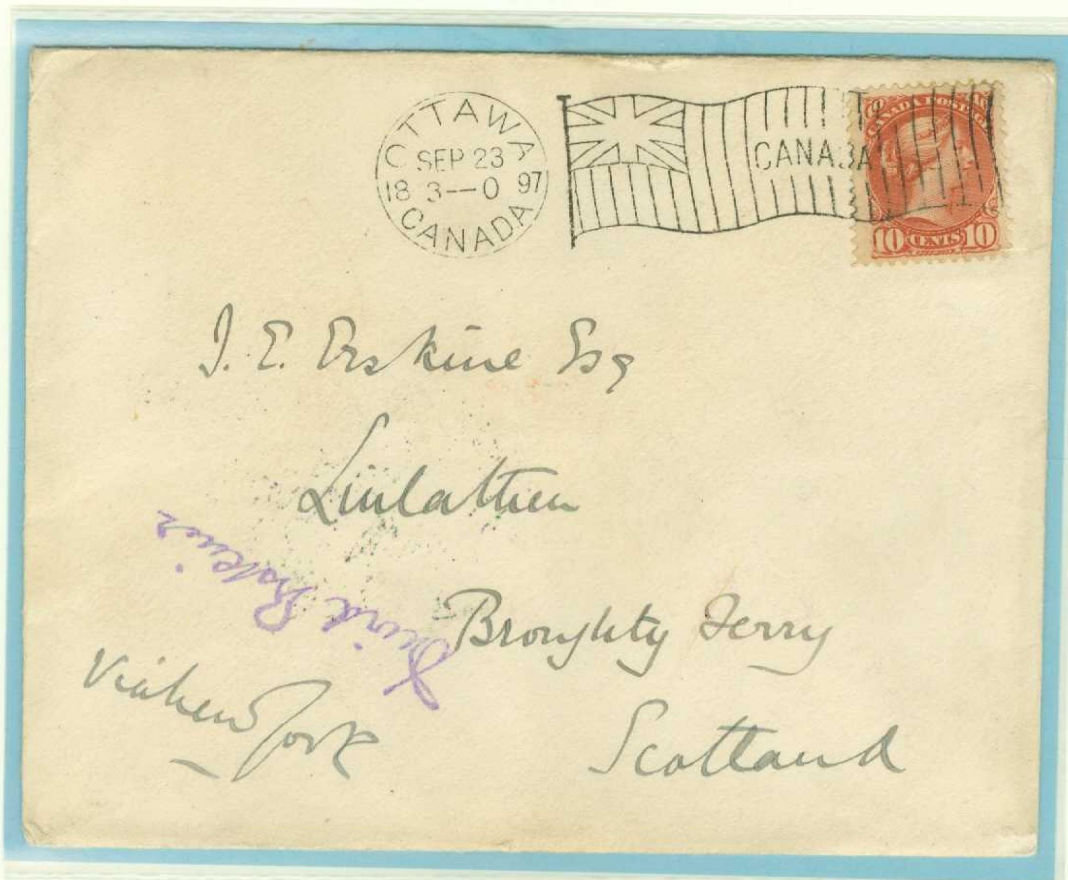 OTTAWA
SEP 23
18 3--0 97
CANADA
CANADA
CANADA POSTAGE
10 CENTS 10
J. E. Erskine Esq
Linlathen
Broughty Ferry
Scotland
Via New York
Erskine